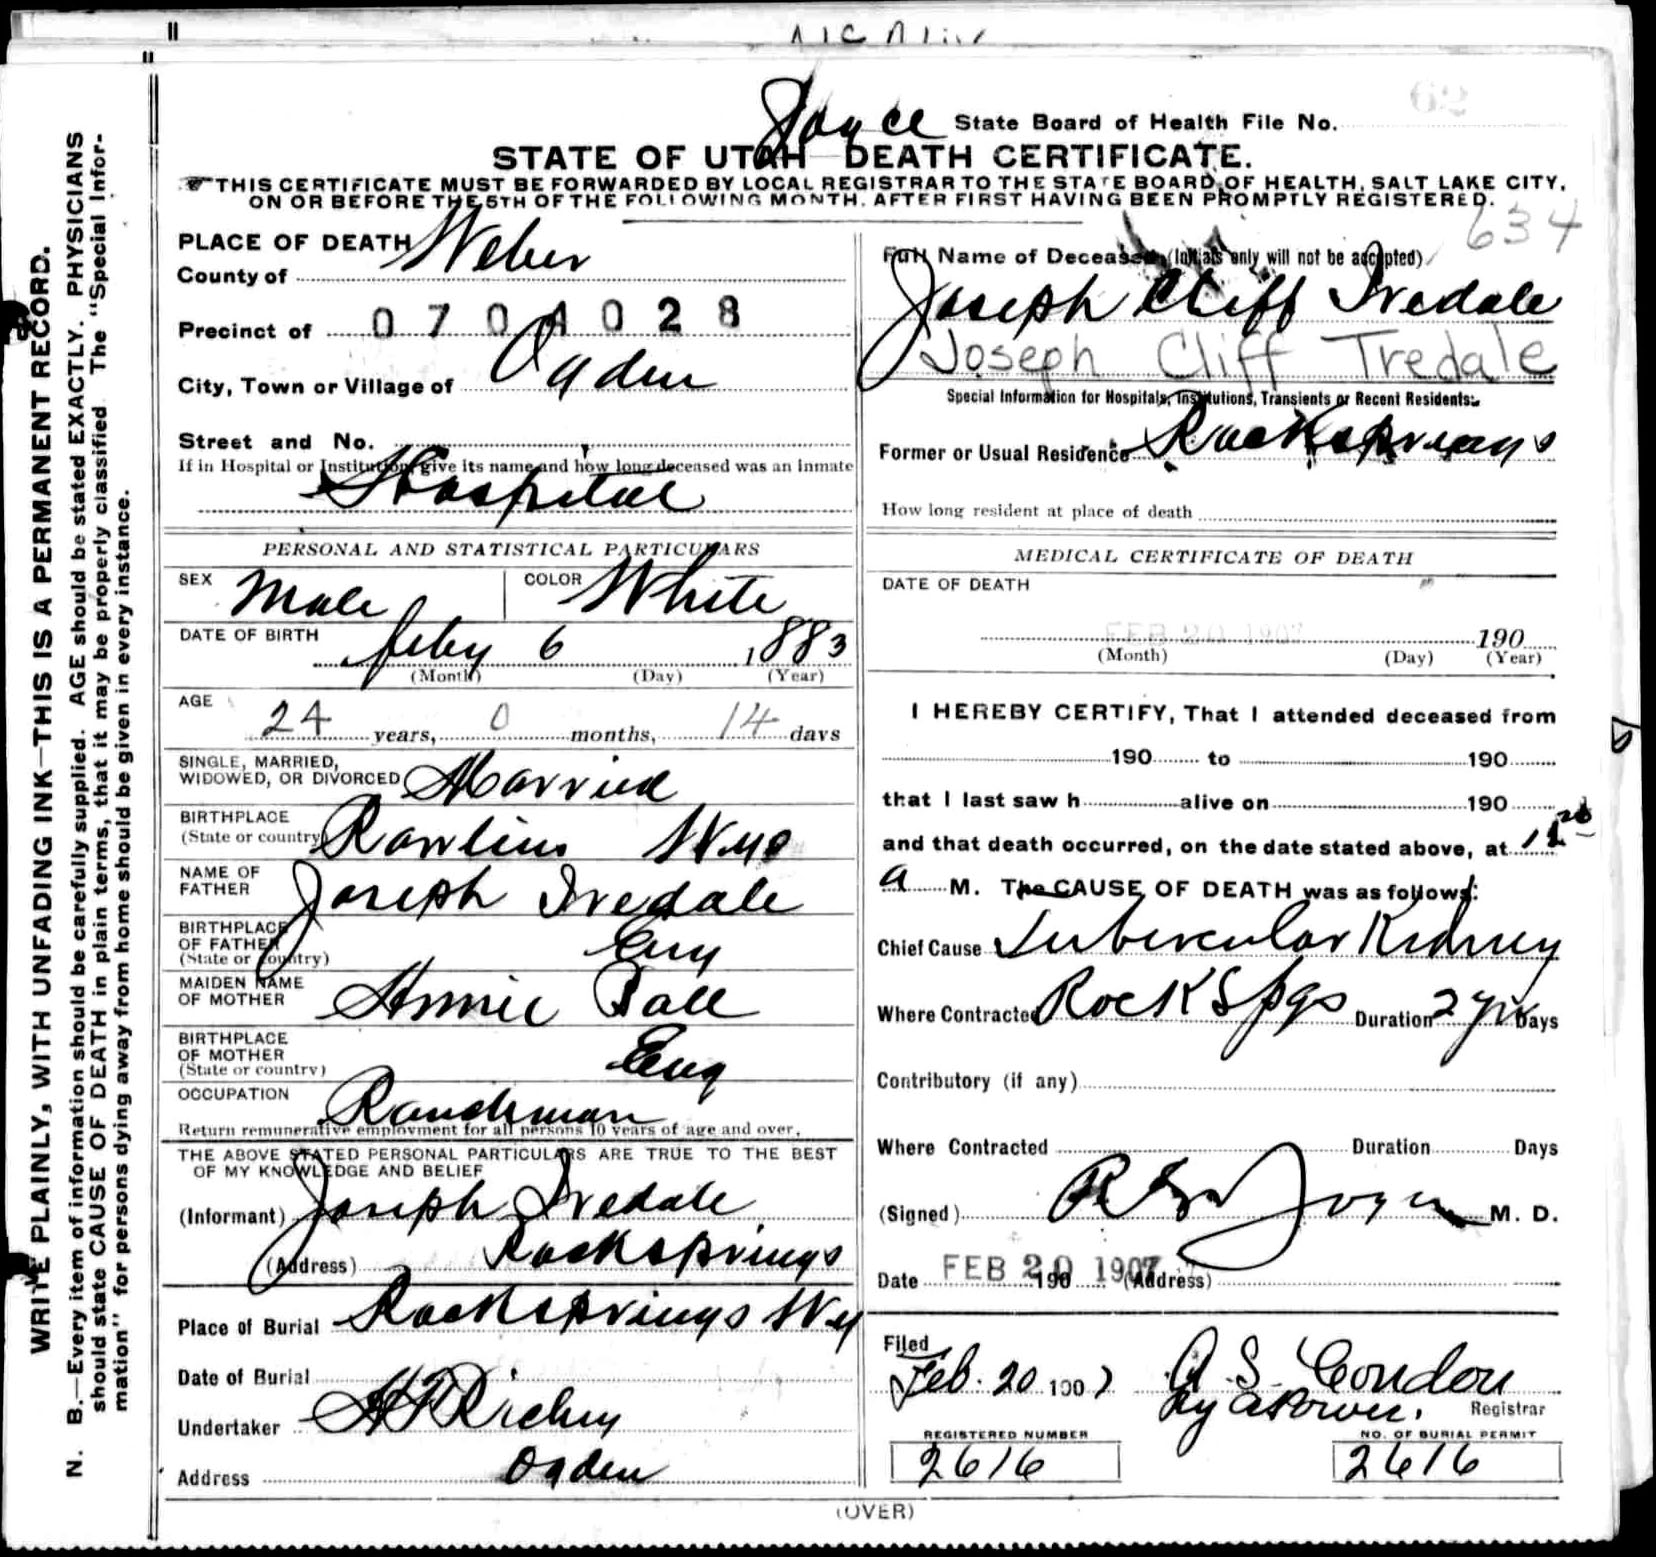 WRITE PLAINLY, WITH UNFADING INK—THIS IS A PERMANENT RECORD.
N. B.—Every item of information should be carefully supplied. AGE should be stated EXACTLY. PHYSICIANS
should state CAUSE OF DEATH in plain terms, that it may be properly classified. The "Special Infor-
mation" for persons dying away from home should be given in every instance.
62
Joyce State Board of Health File No.
STATE OF UTAH DEATH CERTIFICATE.
THIS CERTIFICATE MUST BE FORWARDED BY LOCAL REGISTRAR TO THE STATE BOARD OF HEALTH, SALT LAKE CITY,
ON OR BEFORE THE 5TH OF THE FOLLOWING MONTH, AFTER FIRST HAVING BEEN PROMPTLY REGISTERED.
634
PLACE OF DEATH
County of Weber
Precinct of 0704028
City, Town or Village of Ogden
Street and No.
If in Hospital or Institution, give its name and how long deceased was an inmate
Hospital
PERSONAL AND STATISTICAL PARTICULARS
SEX Male COLOR White
DATE OF BIRTH Feby 6 1883
(Month) (Day) (Year)
AGE 24 years, 0 months, 14 days
SINGLE, MARRIED,
WIDOWED, OR DIVORCED Married
BIRTHPLACE
(State or country) Rawlins Wyo
NAME OF
FATHER Joseph Iredale
BIRTHPLACE
OF FATHER
(State or country) Eng
MAIDEN NAME
OF MOTHER Annie Ball
BIRTHPLACE
OF MOTHER
(State or country) Eng
OCCUPATION Ranchman
Return remunerative employment for all persons 10 years of age and over.
THE ABOVE STATED PERSONAL PARTICULARS ARE TRUE TO THE BEST
OF MY KNOWLEDGE AND BELIEF
(Informant) Joseph Iredale
(Address) Rocksprings
Place of Burial Rocksprings Wy
Date of Burial
Undertaker Richey
Address Ogden
Full Name of Deceased (Initials only will not be accepted)
Joseph Cliff Iredale
Joseph Cliff Tredale
Special Information for Hospitals, Institutions, Transients or Recent Residents:
Former or Usual Residence Rocksprings
How long resident at place of death
MEDICAL CERTIFICATE OF DEATH
DATE OF DEATH
FEB 20 1907 190
(Month) (Day) (Year)
I HEREBY CERTIFY, That I attended deceased from
190 to 190
that I last saw h alive on 190
and that death occurred, on the date stated above, at
a M. The CAUSE OF DEATH was as follows:
Chief Cause Tubercular Kidney
Where Contracted Rock Spgs Duration 2 yrs Days
Contributory (if any)
Where Contracted Duration Days
(Signed) Joyce M. D.
Date FEB 20 1907 190 (Address)
Filed
Feb. 20 1907 A. S. Condon
by Registrar
REGISTERED NUMBER NO. OF BURIAL PERMIT
2616 2616
(OVER)